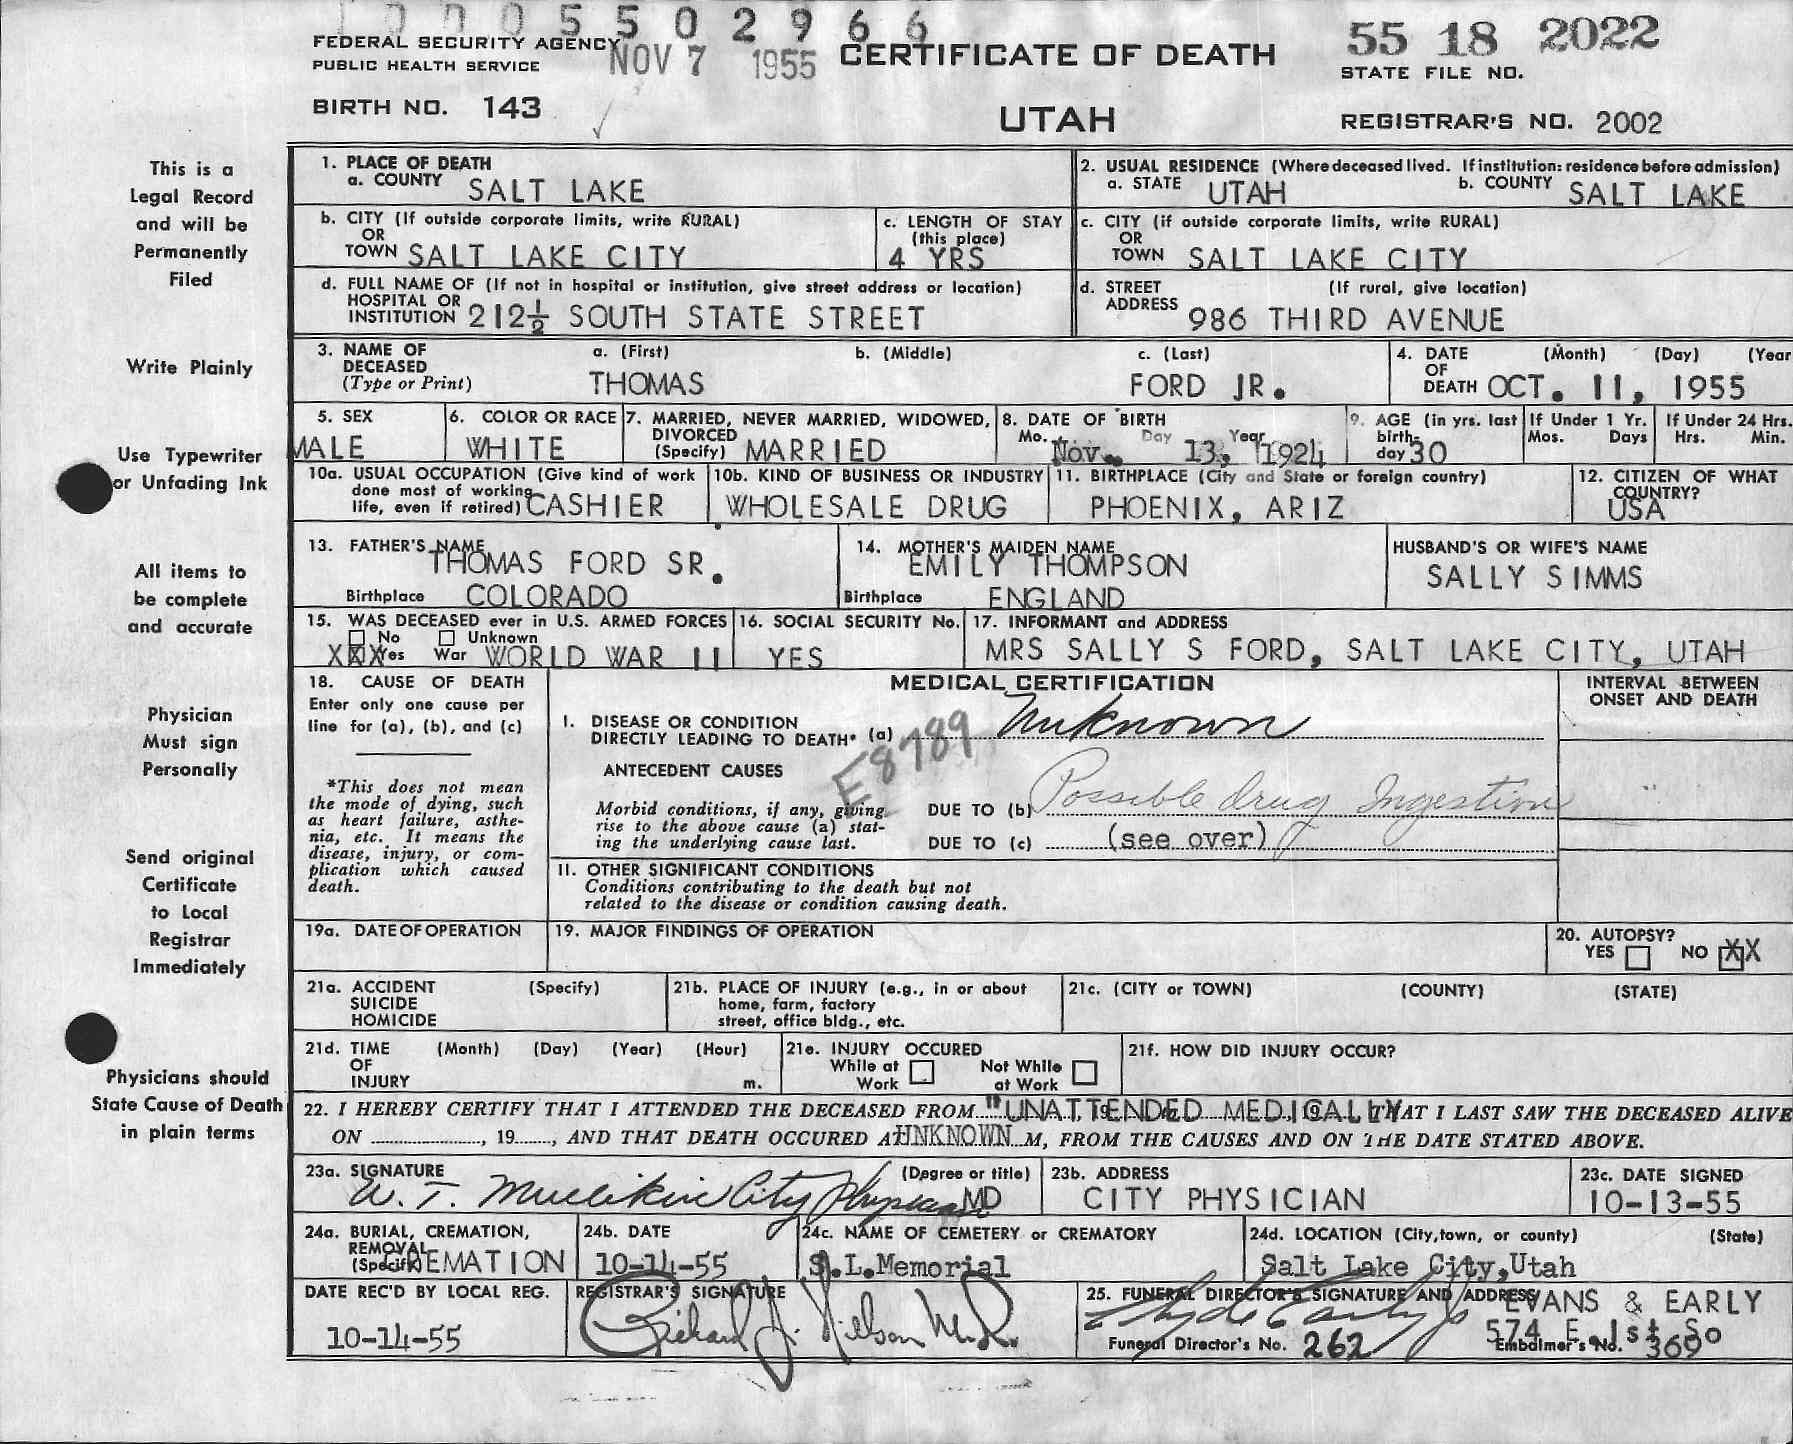 1 0 0 0 5 5 0 2 9 6 6
FEDERAL SECURITY AGENCY
PUBLIC HEALTH SERVICE
NOV 7 1955
CERTIFICATE OF DEATH
55 18 2022
STATE FILE NO.
BIRTH NO. 143
UTAH
REGISTRAR'S NO. 2002
This is a
Legal Record
and will be
Permanently
Filed
Write Plainly
Use Typewriter
or Unfading Ink
All items to
be complete
and accurate
Physician
Must sign
Personally
Send original
Certificate
to Local
Registrar
Immediately
Physicians should
State Cause of Death
in plain terms
1. PLACE OF DEATH
a. COUNTY SALT LAKE
2. USUAL RESIDENCE (Where deceased lived. If institution: residence before admission)
a. STATE UTAH b. COUNTY SALT LAKE
b. CITY (If outside corporate limits, write RURAL)
OR
TOWN SALT LAKE CITY
c. LENGTH OF STAY
(this place)
4 YRS
c. CITY (if outside corporate limits, write RURAL)
OR
TOWN SALT LAKE CITY
d. FULL NAME OF (If not in hospital or institution, give street address or location)
HOSPITAL OR
INSTITUTION 212½ SOUTH STATE STREET
d. STREET (If rural, give location)
ADDRESS 986 THIRD AVENUE
3. NAME OF DECEASED
(Type or Print)
a. (First) b. (Middle) c. (Last)
THOMAS FORD JR.
4. DATE (Month) (Day) (Year
OF
DEATH OCT. 11, 1955
5. SEX
MALE
6. COLOR OR RACE
WHITE
7. MARRIED, NEVER MARRIED, WIDOWED,
DIVORCED
(Specify) MARRIED
8. DATE OF BIRTH
Mo. Day Year
Nov. 13, 1924
9. AGE (in yrs. last
birth-
day 30
If Under 1 Yr.
Mos. Days
If Under 24 Hrs.
Hrs. Min.
10a. USUAL OCCUPATION (Give kind of work
done most of working
life, even if retired) CASHIER
10b. KIND OF BUSINESS OR INDUSTRY
WHOLESALE DRUG
11. BIRTHPLACE (City and State or foreign country)
PHOENIX, ARIZ
12. CITIZEN OF WHAT
COUNTRY?
USA
13. FATHER'S NAME
THOMAS FORD SR.
Birthplace COLORADO
14. MOTHER'S MAIDEN NAME
EMILY THOMPSON
Birthplace ENGLAND
HUSBAND'S OR WIFE'S NAME
SALLY SIMMS
15. WAS DECEASED ever in U.S. ARMED FORCES
No Unknown
XXX Yes War WORLD WAR II
16. SOCIAL SECURITY No.
YES
17. INFORMANT and ADDRESS
MRS SALLY S FORD, SALT LAKE CITY, UTAH
18. CAUSE OF DEATH
Enter only one cause per
line for (a), (b), and (c)
*This does not mean
the mode of dying, such
as heart failure, asthe-
nia, etc. It means the
disease, injury, or com-
plication which caused
death.
MEDICAL CERTIFICATION
INTERVAL BETWEEN
ONSET AND DEATH
I. DISEASE OR CONDITION
DIRECTLY LEADING TO DEATH* (a) Unknown
E8789
ANTECEDENT CAUSES
Morbid conditions, if any, giving
rise to the above cause (a) stat-
ing the underlying cause last.
DUE TO (b) Possible drug Ingestion
DUE TO (c) (see over)
II. OTHER SIGNIFICANT CONDITIONS
Conditions contributing to the death but not
related to the disease or condition causing death.
19a. DATE OF OPERATION
19. MAJOR FINDINGS OF OPERATION
20. AUTOPSY?
YES NO XX
21a. ACCIDENT (Specify)
SUICIDE
HOMICIDE
21b. PLACE OF INJURY (e.g., in or about
home, farm, factory
street, office bldg., etc.
21c. (CITY or TOWN) (COUNTY) (STATE)
21d. TIME (Month) (Day) (Year) (Hour)
OF
INJURY m.
21e. INJURY OCCURED
While at Work
Not While at Work
21f. HOW DID INJURY OCCUR?
22. I HEREBY CERTIFY THAT I ATTENDED THE DECEASED FROM "UNATTENDED MEDICALLY THAT I LAST SAW THE DECEASED ALIVE
ON , 19 , AND THAT DEATH OCCURED AT UNKNOWN M, FROM THE CAUSES AND ON THE DATE STATED ABOVE.
23a. SIGNATURE (Degree or title)
W. T. Mullikin City Physician MD
23b. ADDRESS
CITY PHYSICIAN
23c. DATE SIGNED
10-13-55
24a. BURIAL, CREMATION,
REMOVAL
(Specify) CREMATION
24b. DATE
10-14-55
24c. NAME OF CEMETERY or CREMATORY
S.L.Memorial
24d. LOCATION (City, town, or county) (State)
Salt Lake City,Utah
DATE REC'D BY LOCAL REG.
10-14-55
REGISTRAR'S SIGNATURE
Richard J. Nelson M.D.
25. FUNERAL DIRECTOR'S SIGNATURE AND ADDRESS
EVANS & EARLY
574 E. 1st So
Funeral Director's No. 262
Embalmer's No. 369